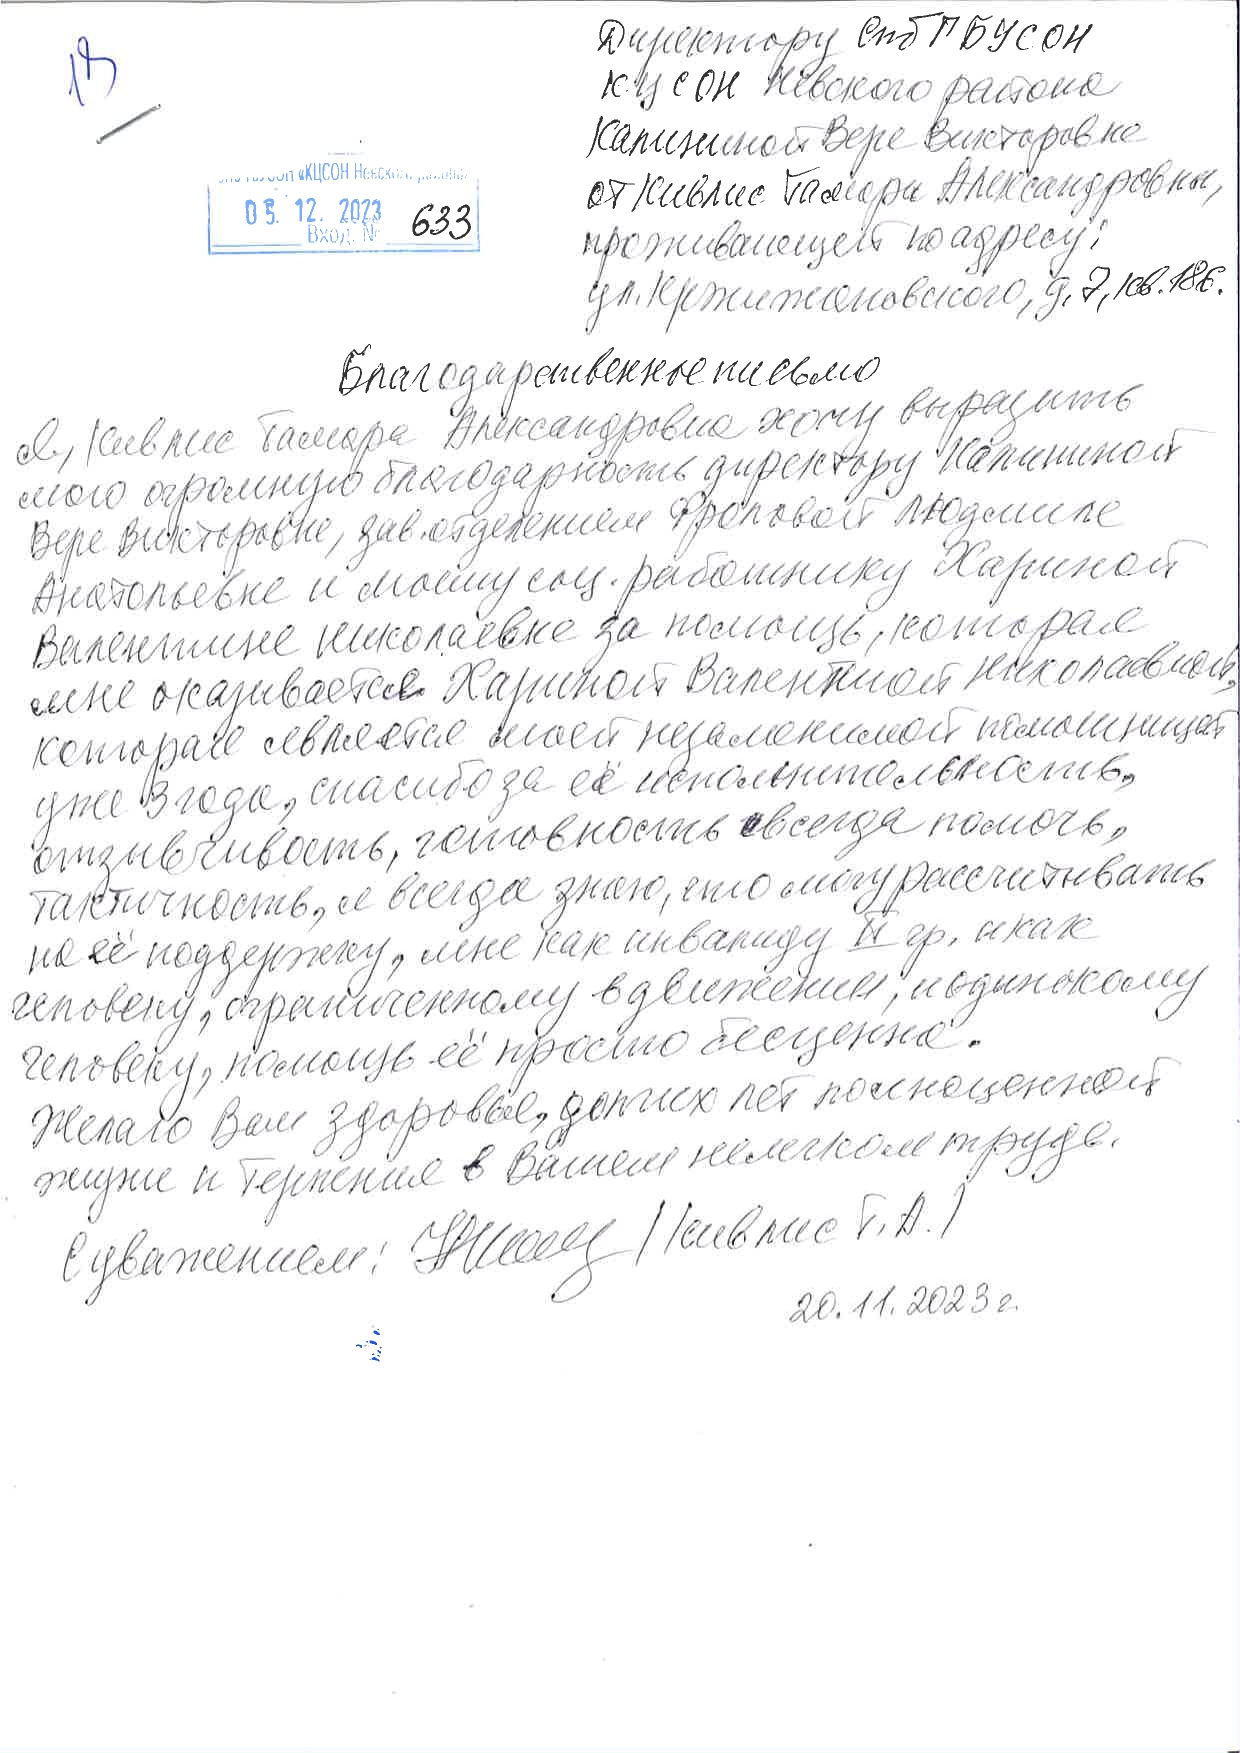 Директору СпбГБУСОН
КЦСОН Невского района
Калининой Вере Викторовне
от Кивлис Тамара Александровны,
проживающей по адресу:
ул. Кржижановского, д. 7, кв. 186.
«КЦСОН Невского района»
05. 12. 2023
Вход. № 633
Благодарственное письмо
Я, Кивлис Тамара Александровна хочу выразить
мою огромную благодарность директору Калининой
Вере Викторовне, зав. отделением Фроловой Людмиле
Анатольевне и моему соц. работнику Хариной
Валентине Николаевне за помощь, которая
мне оказывается Хариной Валентиной Николаевной,
которая является моей незаменимой помощницей
уже 3 года, спасибо за её исполнительность,
отзывчивость, готовность всегда помочь,
тактичность, я всегда знаю, что могу рассчитывать
на её поддержку, мне как инвалиду II гр. и как
человеку, ограниченному в движении, и одинокому
человеку, помощь её просто бесценна.
Желаю Вам здоровья, долгих лет полноценной
жизни и терпения в Вашем нелегком труде.
С уважением: /Кивлис Т. А./
20. 11. 2023 г.